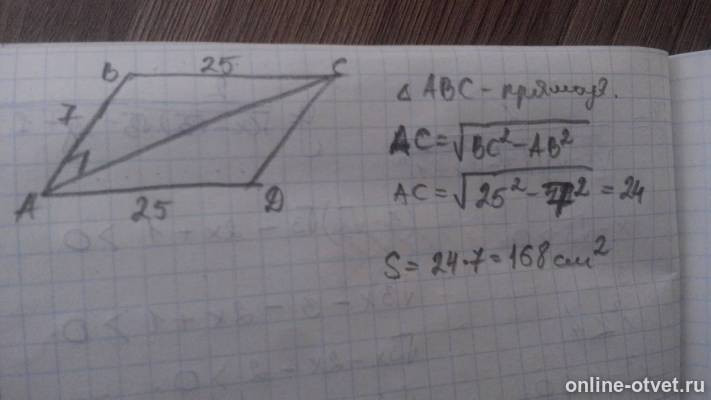 B 25 C
7
A 25 D
△ ABC - прямоуг.
AC = √BC² - AB²
AC = √25² - 7² = 24
S = 24·7 = 168 см²
online-otvet.ru